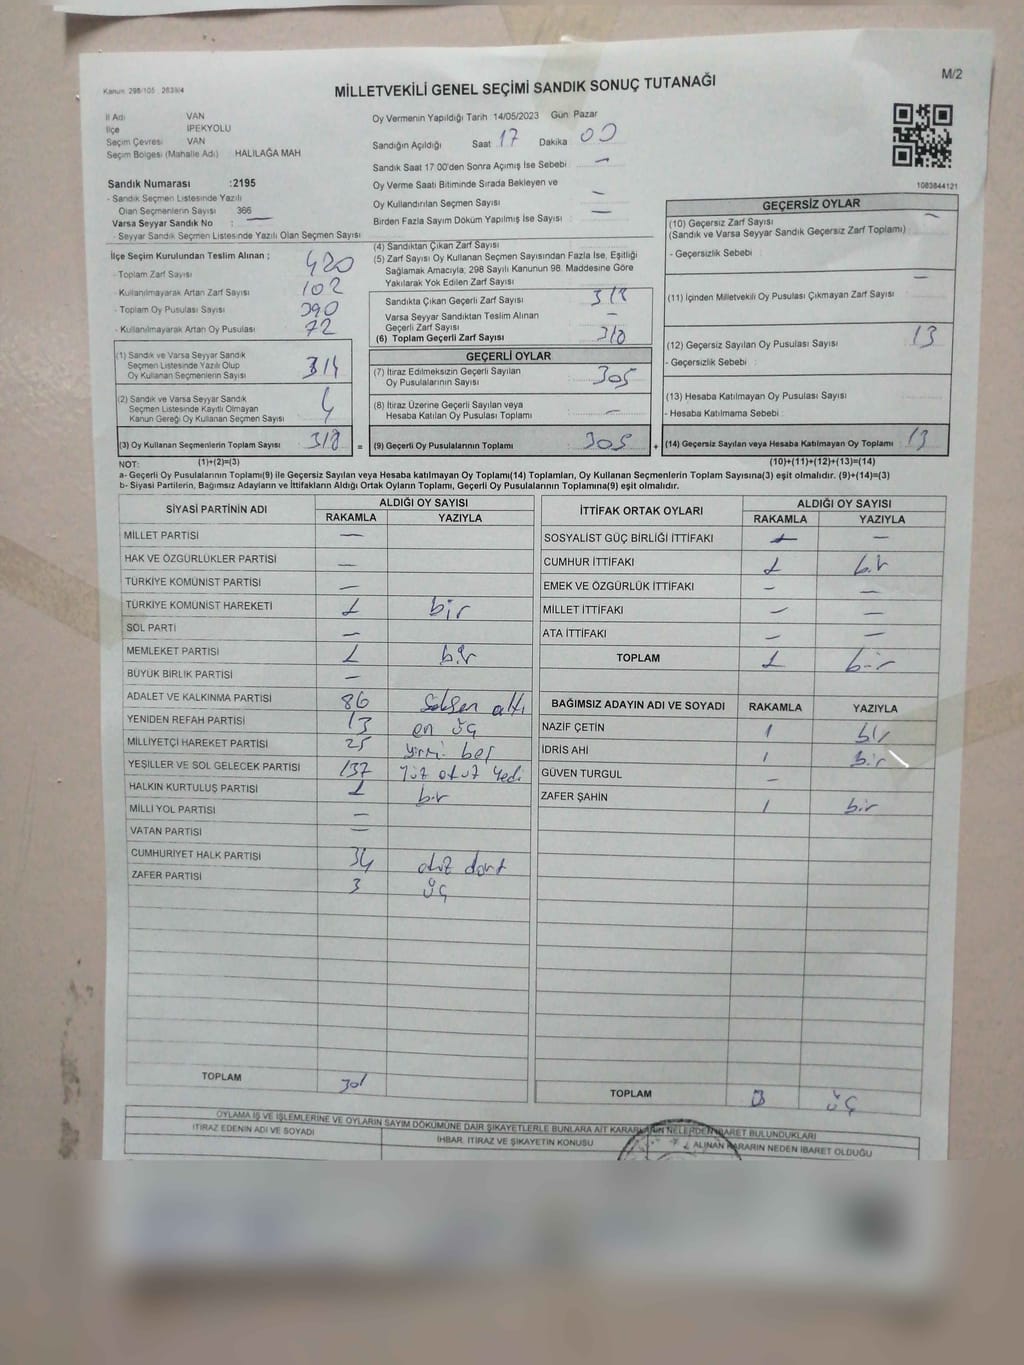 Kanun 298/105 2839/4
MİLLETVEKİLİ GENEL SEÇİMİ SANDIK SONUÇ TUTANAĞI
M/2
İl Adı VAN
İlçe İPEKYOLU
Seçim Çevresi VAN
Seçim Bölgesi (Mahalle Adı) HALİLAĞA MAH
Sandık Numarası :2195
- Sandık Seçmen Listesinde Yazılı
Olan Seçmenlerin Sayısı 366
Varsa Seyyar Sandık No : —
- Seyyar Sandık Seçmen Listesinde Yazılı Olan Seçmen Sayısı
Oy Vermenin Yapıldığı Tarih 14/05/2023 Gün: Pazar
Sandığın Açıldığı Saat 17 Dakika 00
Sandık Saat 17:00'den Sonra Açımış İse Sebebi —
Oy Verme Saati Bitiminde Sırada Bekleyen ve
Oy Kullandırılan Seçmen Sayısı —
Birden Fazla Sayım Döküm Yapılmış İse Sayısı —
1083844121
İlçe Seçim Kurulundan Teslim Alınan ;
- Toplam Zarf Sayısı 420
- Kullanılmayarak Artan Zarf Sayısı 102
- Toplam Oy Pusulası Sayısı 390
- Kullanılmayarak Artan Oy Pusulası 72
(1) Sandık ve Varsa Seyyar Sandık
Seçmen Listesinde Yazılı Olup
Oy Kullanan Seçmenlerin Sayısı 314
(2) Sandık ve Varsa Seyyar Sandık
Seçmen Listesinde Kayıtlı Olmayan
Kanun Gereği Oy Kullanan Seçmen Sayısı 4
(3) Oy Kullanan Seçmenlerin Toplam Sayısı 318 =
(4) Sandıktan Çıkan Zarf Sayısı
(5) Zarf Sayısı Oy Kullanan Seçmen Sayısından Fazla İse, Eşitliği
Sağlamak Amacıyla, 298 Sayılı Kanunun 98. Maddesine Göre
Yakılarak Yok Edilen Zarf Sayısı
Sandıkta Çıkan Geçerli Zarf Sayısı 318
Varsa Seyyar Sandıktan Teslim Alınan
Geçerli Zarf Sayısı —
(6) Toplam Geçerli Zarf Sayısı 318
GEÇERLİ OYLAR
(7) İtiraz Edilmeksizin Geçerli Sayılan
Oy Pusulalarının Sayısı 305
(8) İtiraz Üzerine Geçerli Sayılan veya
Hesaba Katılan Oy Pusulası Toplamı —
(9) Geçerli Oy Pusulalarının Toplamı 305 +
GEÇERSİZ OYLAR
(10) Geçersiz Zarf Sayısı —
(Sandık ve Varsa Seyyar Sandık Geçersiz Zarf Toplamı)
- Geçersizlik Sebebi :
(11) İçinden Milletvekili Oy Pusulası Çıkmayan Zarf Sayısı —
(12) Geçersiz Sayılan Oy Pusulası Sayısı 13
- Geçersizlik Sebebi :
(13) Hesaba Katılmayan Oy Pusulası Sayısı
- Hesaba Katılmama Sebebi :
(14) Geçersiz Sayılan veya Hesaba Katılmayan Oy Toplamı 13
NOT: (1)+(2)=(3) (10)+(11)+(12)+(13)=(14)
a- Geçerli Oy Pusulalarının Toplamı(9) ile Geçersiz Sayılan veya Hesaba katılmayan Oy Toplamı(14) Toplamları, Oy Kullanan Seçmenlerin Toplam Sayısına(3) eşit olmalıdır. (9)+(14)=(3)
b- Siyasi Partilerin, Bağımsız Adayların ve İttifakların Aldığı Ortak Oyların Toplamı, Geçerli Oy Pusulalarının Toplamına(9) eşit olmalıdır.
SİYASİ PARTİNİN ADI ALDIĞI OY SAYISI
RAKAMLA YAZIYLA
MİLLET PARTİSİ —
HAK VE ÖZGÜRLÜKLER PARTİSİ —
TÜRKİYE KOMÜNİST PARTİSİ —
TÜRKİYE KOMÜNİST HAREKETİ 1 bir
SOL PARTİ —
MEMLEKET PARTİSİ 1 bir
BÜYÜK BİRLİK PARTİSİ —
ADALET VE KALKINMA PARTİSİ 86 seksen altı
YENİDEN REFAH PARTİSİ 13 on üç
MİLLİYETÇİ HAREKET PARTİSİ 25 yirmi beş
YEŞİLLER VE SOL GELECEK PARTİSİ 137 yüz otuz yedi
HALKIN KURTULUŞ PARTİSİ 1 bir
MİLLİ YOL PARTİSİ —
VATAN PARTİSİ —
CUMHURİYET HALK PARTİSİ 34 otuz dört
ZAFER PARTİSİ 3 üç
TOPLAM 301
İTTİFAK ORTAK OYLARI ALDIĞI OY SAYISI
RAKAMLA YAZIYLA
SOSYALİST GÜÇ BİRLİĞİ İTTİFAKI — —
CUMHUR İTTİFAKI 1 bir
EMEK VE ÖZGÜRLÜK İTTİFAKI — —
MİLLET İTTİFAKI — —
ATA İTTİFAKI — —
TOPLAM 1 bir
BAĞIMSIZ ADAYIN ADI VE SOYADI RAKAMLA YAZIYLA
NAZİF ÇETİN 1 bir
İDRİS AHİ 1 bir
GÜVEN TURGUL —
ZAFER ŞAHİN 1 bir
TOPLAM 3 üç
OYLAMA İŞ VE İŞLEMLERİNE VE OYLARIN SAYIM DÖKÜMÜNE DAİR ŞİKAYETLERLE BUNLARA AİT KARARLARIN NELERDEN İBARET BULUNDUKLARI
İTİRAZ EDENİN ADI VE SOYADI İHBAR, İTİRAZ VE ŞİKAYETİN KONUSU ALINAN KARARIN NEDEN İBARET OLDUĞU